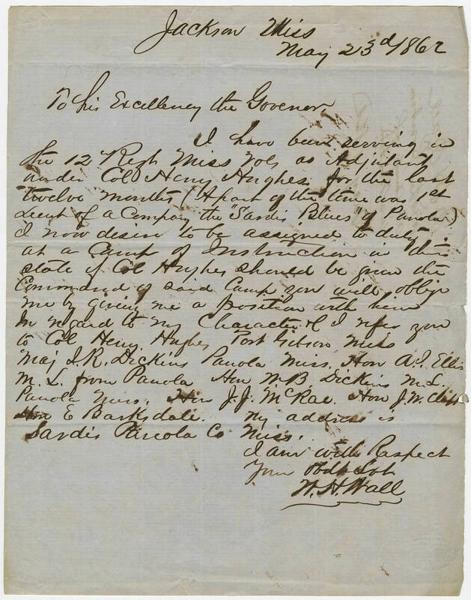 Jackson Miss
May 23d 1862
To his Excellency the Govenor
I have been serving in
the 12 Regt Miss Vols as Adjutant
under Col Henry Hughes for the last
twelve months (Apart of the time was 1st
Lieut of a Company the "Sardis Blues" of Panola)
I now desire to be assigned to duty
at a Camp of Instruction in this
state if Col Hughes should be given the
Command of said Camp you will oblige
me by giving me a position with him
In regard to my Character I refer you
to Col Henry Hughes Port Gibson Miss
Maj J. R. Dickins Panola Miss. Hon A. J. Ellis
M. L. from Panola Hon W. B Dickins M. L.
Panola Miss. Hon J. J. McRae. Hon J. W.
Hon E Barksdale. My address is
Sardis Panola Co Miss.
I am with Respect
Your Obdt Svt
W. H. Wall